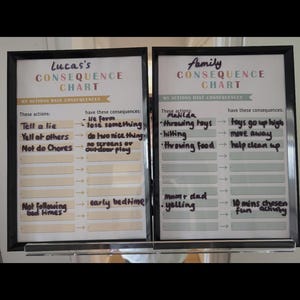 Lucas's
CONSEQUENCE
CHART
MY ACTIONS HAVE CONSEQUENCES
These actions:
have these consequences:
Tell a lie
- lie form
- lose something
Yell at others
- do two nice things
Not do Chores
- no screens or
outdoor play
Not following
bed times
- early bedtime
Family
CONSEQUENCE
CHART
MY ACTIONS HAVE CONSEQUENCES
These actions:
have these consequences:
Matilda
- throwing toys
- toys go up high
- hitting
- move away
- throwing food
- help clean up
mum + dad
- yelling
- 10 mins chosen
fun activity